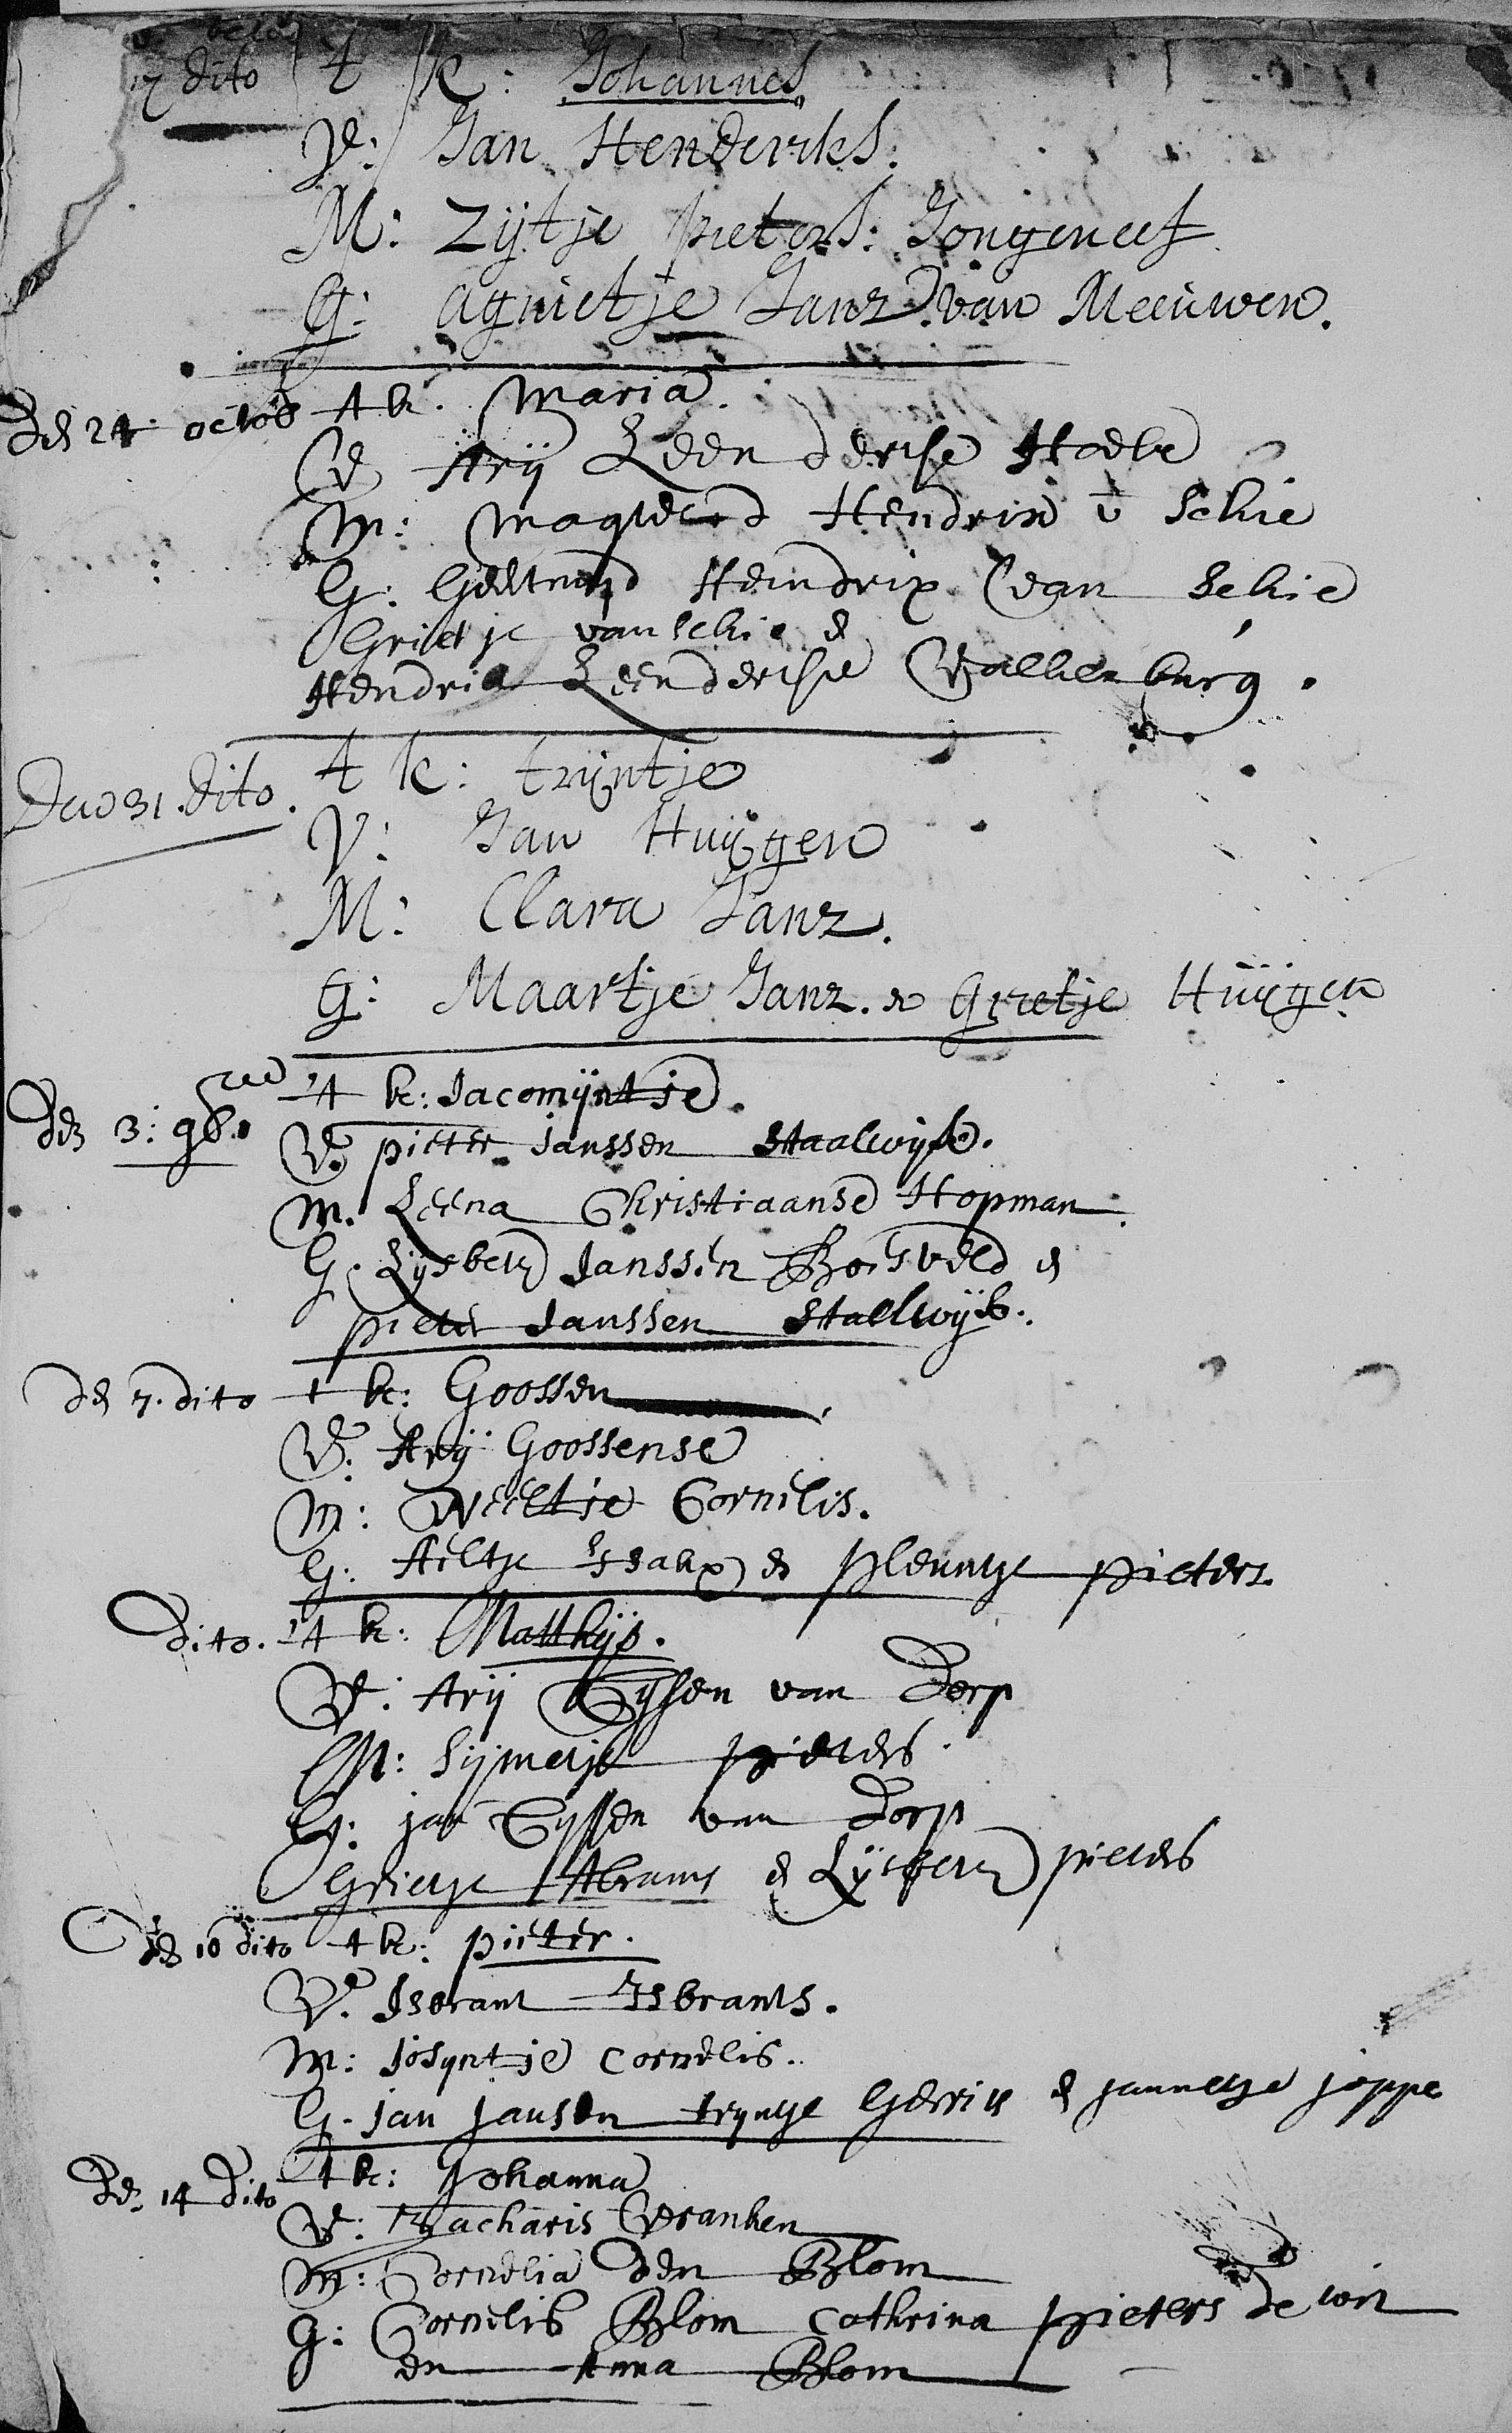 dito t k: Johannes
V: Jan Henderiks.
M: Zijtje pieters: Jongeneel
G: agnietje Janz van Meeuwen.
Den 24 octob t k. Maria.
V Arij Leendertse Hoeke
M: Magteld Hendrix v Schie
G: Geertruyd Heindrix van Schie
Grietje van Schie en
Hendrik Leendertse Valkenburg.
Den 31. dito. t k: trijntje
V: Jan Huijgen
M: Clara Janz.
G: Maartje Janz. en Grietje Huijgen
Den 3: 9b. 't k: Jacomijntje.
V. pieter Janssen Staalwijk.
M. Leena Christiaanse Hopman.
G. Lijsbeth Janssen Bosveld en
pieter Janssen Stallwijk.
Den 7. dito t k: Goossen
V. Arij Goossense
M: Weeltie Cornelis.
G: Aeltje en Pleuntje Pieters.
Dito. 't k: Matthijs.
V: Arij Tyssen van Dorp
M: Sijmetje pieters.
G: jan Tyssen van Dorp
Grietje Abrams en Lijsbeth pieters
Den 10 dito t k: pieter.
V. Isbrant Isbrants.
M: Josyntje Cornelis.
G. jan jansen trijntje Gerrits en jannetje joppe
Den 14 dito t k: Johanna
V: Zacharis Vranken
M: Cornelia den Blom
G: Cornelis Blom Cathrina Pieters de wit
en Anna Blom